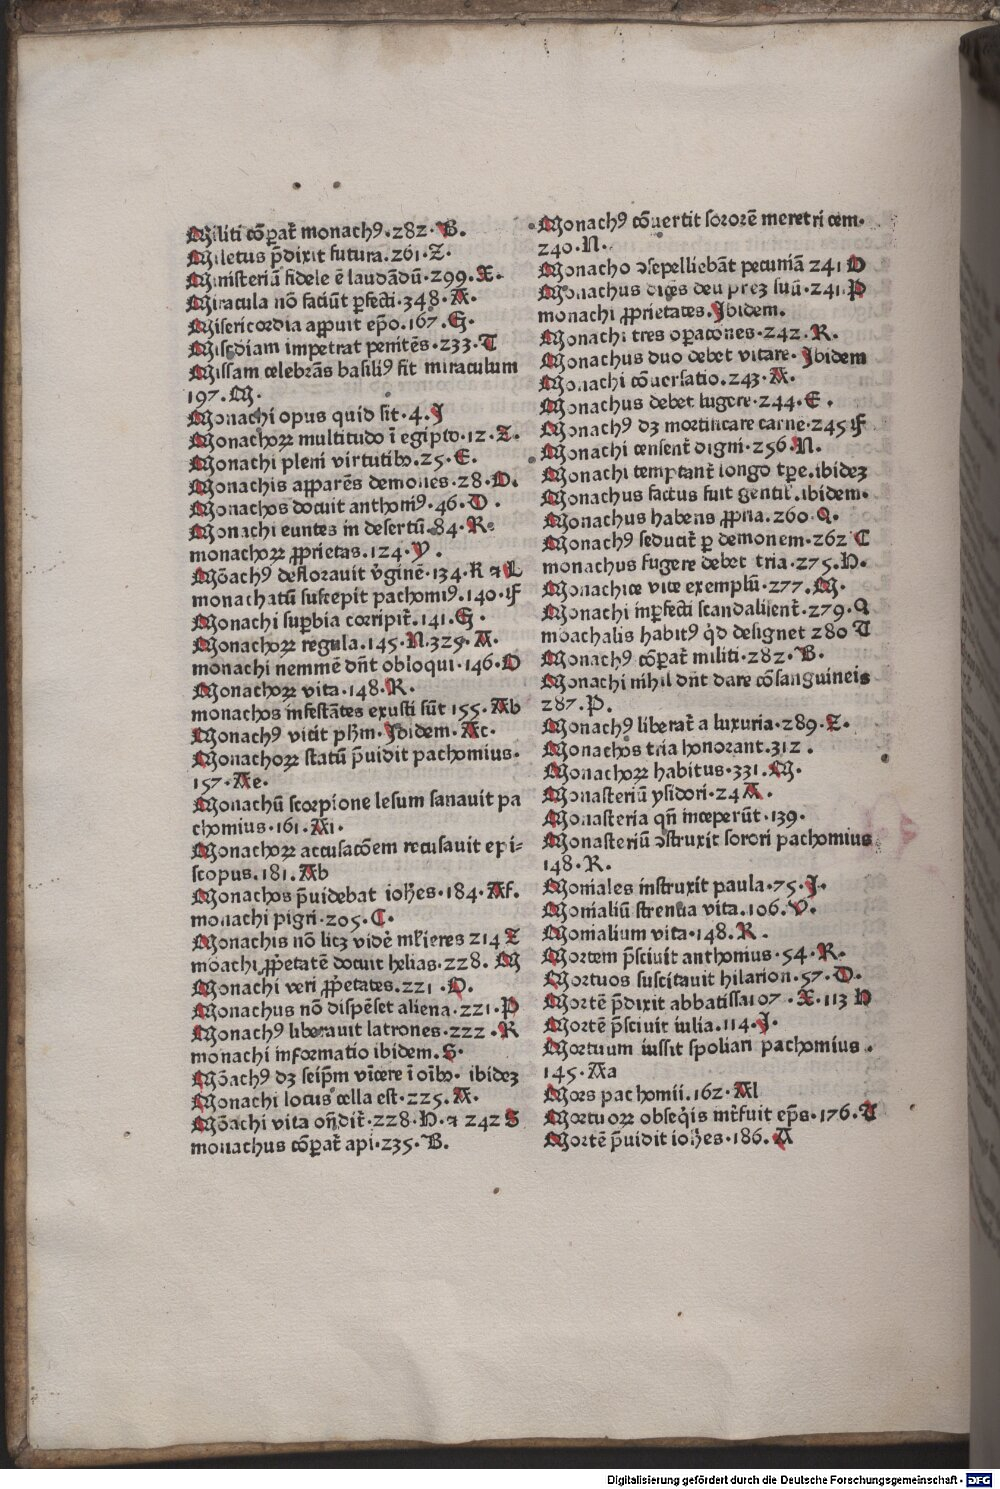 Militi cōꝑat᷑ monachꝰ.282.B.
Miletus p̄dixit futura.261.Z.
Ministeriū fidele ē laudādū.299.X.
Miracula nō faciūt ꝑfecti.348.A.
Misericordia apꝑuit ep̄o.167.G.
Miscdiam impetrat penitēs.233.T
Missam celebrās basiliꝰ fit miraculum
197.M.
Monachi opus quid sit.4.J
Monachoꝝ multitudo ī egipto.12.Z.
Monachi pleni virtutibꝰ.25.E.
Monachis apparēs demones.28.O.
Monachos docuit anthoniꝰ.46.D.
Monachi euntes in desertū.84.R.
monachoꝝ ꝓprietas.124.V.
Mōachꝰ defloravit v̓ginē.134.K ⁊ L
monachatū suscepit pachomiꝰ.140.F
Monachi suꝑbia corripit᷑.141.G.
Monachoꝝ regula.145.N.325.A.
monachi nemmē dn̄t obloqui.146.O
Monachoꝝ vita.148.R.
monachos infestātes exusti sūt 155.Ab
Monachꝰ vicit ph̄m.Jbidem.Ac.
Monachoꝝ statū p̄uidit pachomius.
157.Ae.
Monachū scorpione lesum sanauit pa
chomius.161.Ai.
Monachoꝝ accusacōem recusauit epi-
scopus.181.Ab
Monachos p̄uidebat ioh̄es.184.Af.
monachi pigri.205.C.
Monachis nō licꝫ vidē mƚieres 214 Z
moachi ꝓp̓etatē docuit helias.228. M
Monachi veri ꝓp̓etates.221.O.
Monachus nō dispēset aliena.221.P
Monachꝰ liberauit latrones.222.R
monachi informatio ibidem.S.
Mōachꝰ dꝫ seip̄m vīcere ī oībꝰ. ibidez
Monachi locus cella est.225.A.
Mōachi vita on̄dit᷑.228.H.⁊ 242 S
monachus cōꝑat᷑ api.235.B.
Monachꝰ cōuertit sororē meretricem.
240.N.
Monacho ↄsepelliebāt pecuniā 241 O
Monachus dicēs deū prez suū.241.P
monachi ꝓprietates.Jbidem.
Monachi tres oꝑacōnes.242.R.
Monachus duo debet vitare.Jbidem
Monachi cōuersatio.243.A.
Monachus debet lugere.244.E.
Monachꝰ dꝫ mortificare carnē.245 F
Monachi censent᷑ digni.256.N.
Monachi temptant᷑ longo tꝑe.ibidez
Monachus factus fuit gentiƚ.ibidem.
Monachus habens ꝓpria.260.Q.
Monachꝰ seducit᷑ ꝑ demonem.262 C
monachus fugere debet tria.275.H.
Monachice vite exemplū.277.M.
Monachi inꝑfecti scandalisent᷑.279.Q
moachalis habitꝰ q̇d designet 280 T
Monachꝰ cōꝑat᷑ militi.282.B.
Monachi nihil dn̄t dare cōsanguineis
287.P.
Monachꝰ liberat᷑ a luxuria.289.Z.
Monachos tria honorant.312.
Monachoꝝ habitus.331.M.
Monasteriū ysidori.24 A.
Monasteria qn̄ inceperūt.139.
Monasteriū ↄstruxit sorori pachomius
148.R.
Moniales instruxit paula.75.J.
Monialiū strenua vita.106.V.
Monialium vita.148.R.
Mortem p̄sciuit anthonius.54.R.
Mortuos suscitauit hilarion.57.D.
Mortē p̄dixit abbatissa107.X.113 H
Mortē p̄sciuit iulia.114.J.
Mortuum iussit spoliari pachomius.
145.Aa
Mors pachomii.162.Al
Mortuoꝝ obseq̇is int᷑fuit ep̄s.176.T
Mortē p̄uidit ioh̄es.186.A
Digitalisierung gefördert durch die Deutsche Forschungsgemeinschaft - DFG